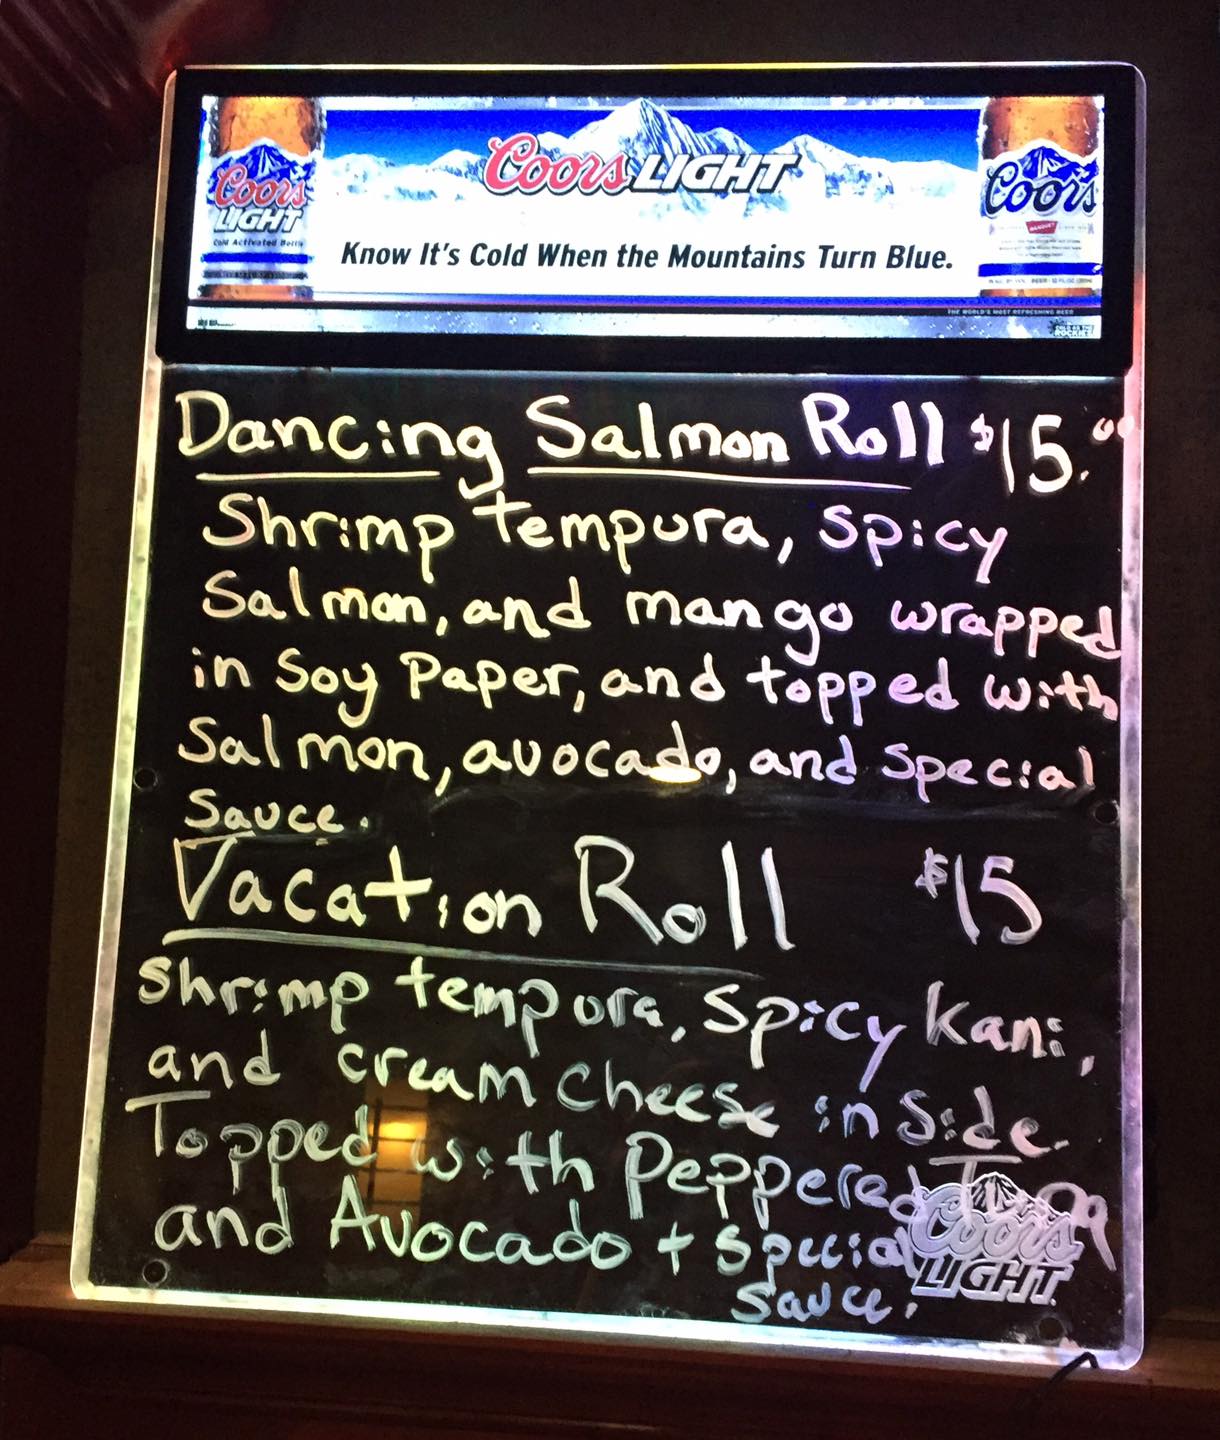 Coors LIGHT
Coors
LIGHT
Cold Activated Bottle
Coors
BANQUET
Know It's Cold When the Mountains Turn Blue.
THE WORLD'S MOST REFRESHING BEER
COLD AS THE
ROCKIES
Dancing Salmon Roll $15.00
Shrimp tempura, spicy
Salmon, and mango wrapped
in Soy Paper, and topped with
Salmon, avocado, and special
sauce.
Vacation Roll $15
shrimp tempura, spicy kani,
and cream cheese inside.
Topped with Peppered Tuna
and Avocado + special
sauce.
Coors
LIGHT